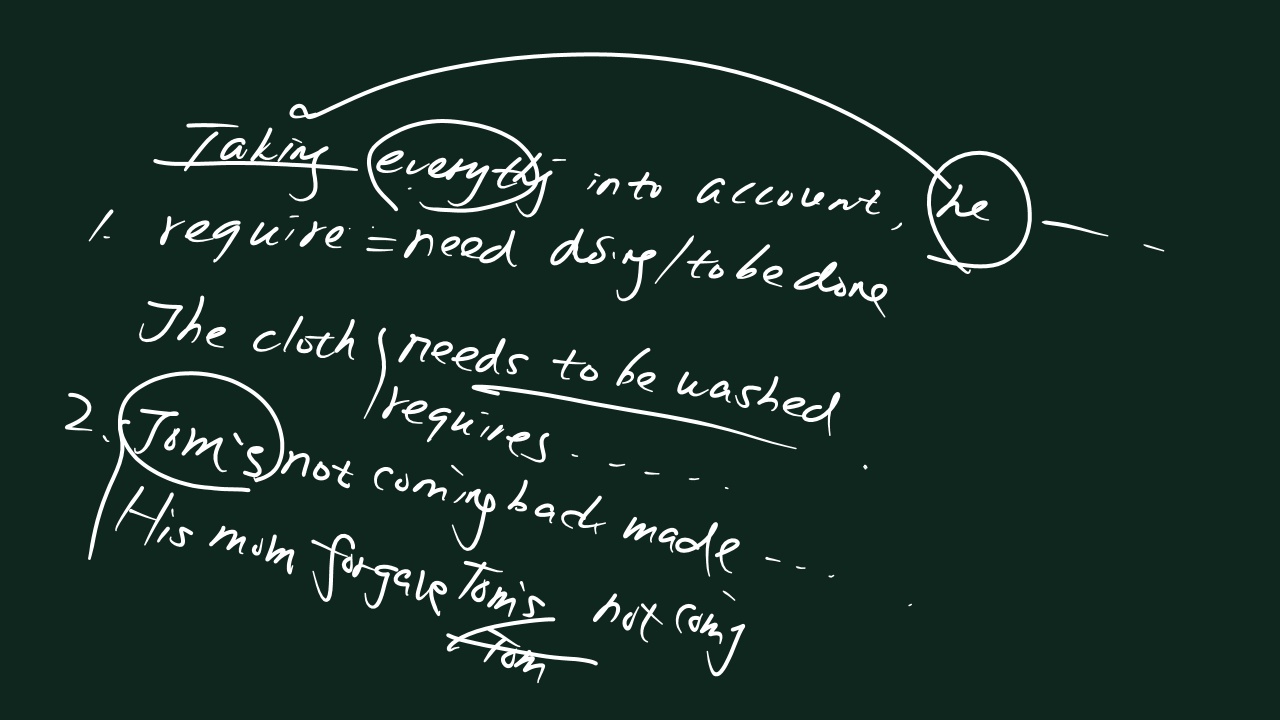 Taking everythg into account, he
1. require = need doing/to be done
The cloth needs to be washed
requires ......
2. Tom's not coming back made ...
His mom forgave Tom's not comg
Tom